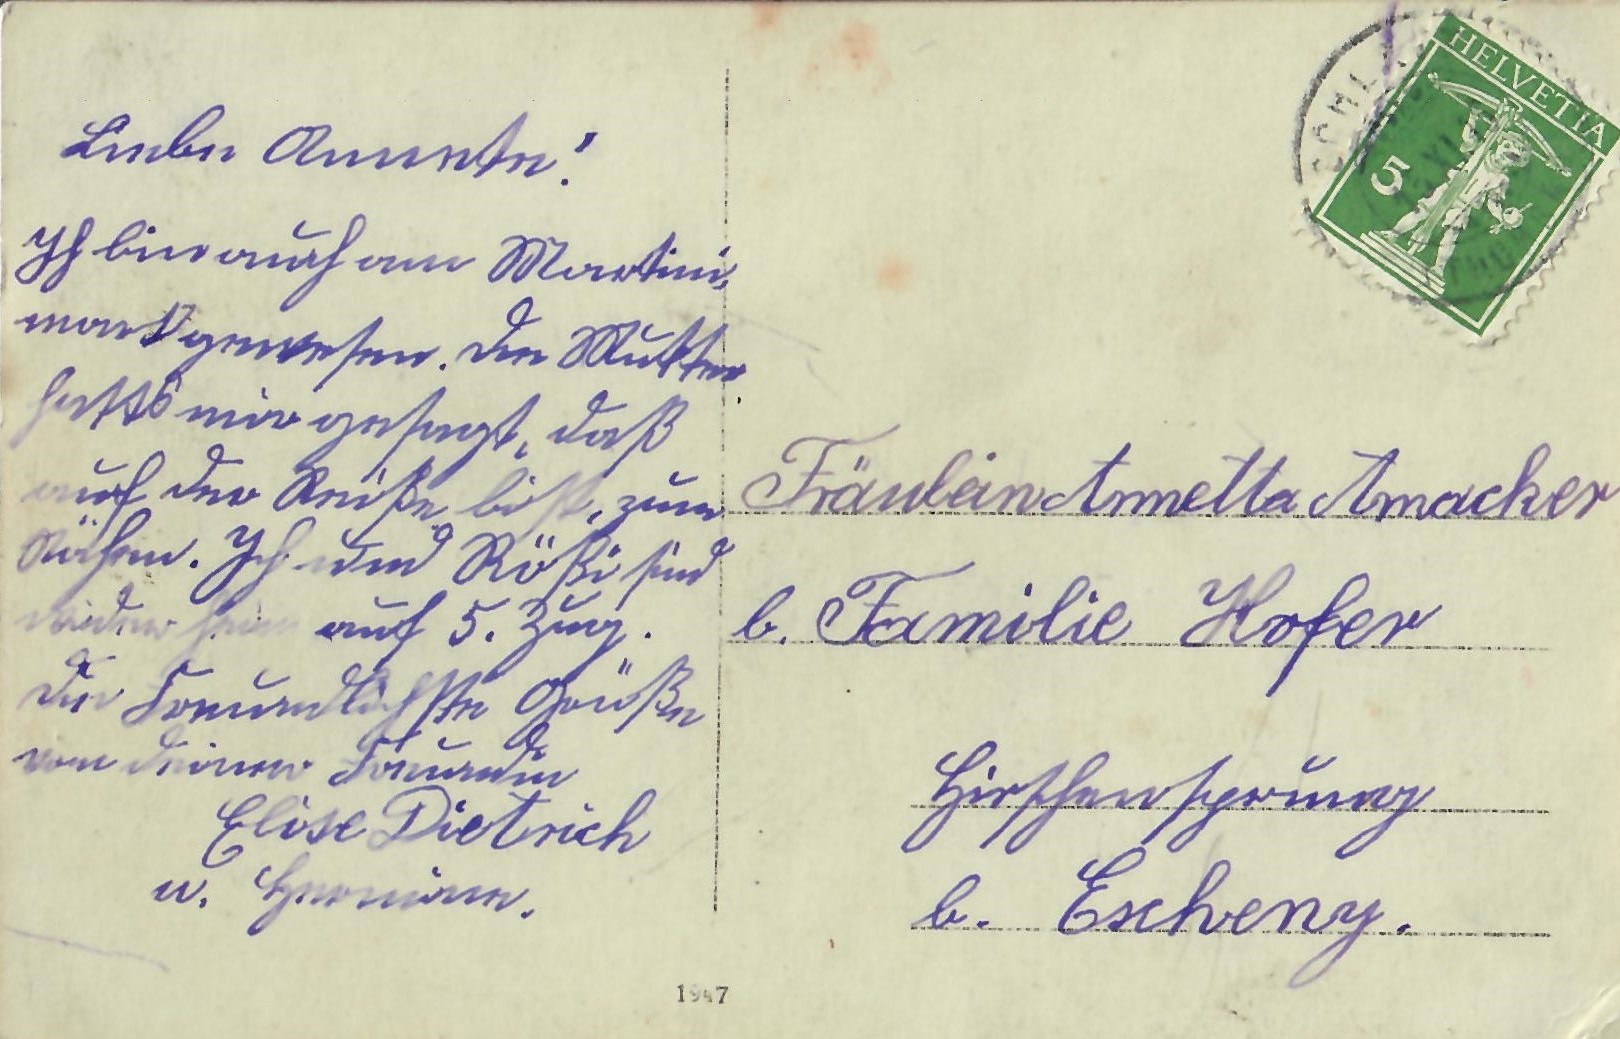 Liebe Annette!
Ich bin auch am Martini-
markt gewesen. Die Mutter
hatts mir gesagt, daß
auf der Reise bist, zum
Nähen. Ich und Rößi sind
wieder heim auf 5. Zug.
Die Freundlichste Grüße
von deiner Freundin
Elise Dietrich
u. Hermine.
HELVETIA
5
Fräulein Annetta Amacker
b. Familie Hofer
Hirschensprung
b. Escheny.
1947